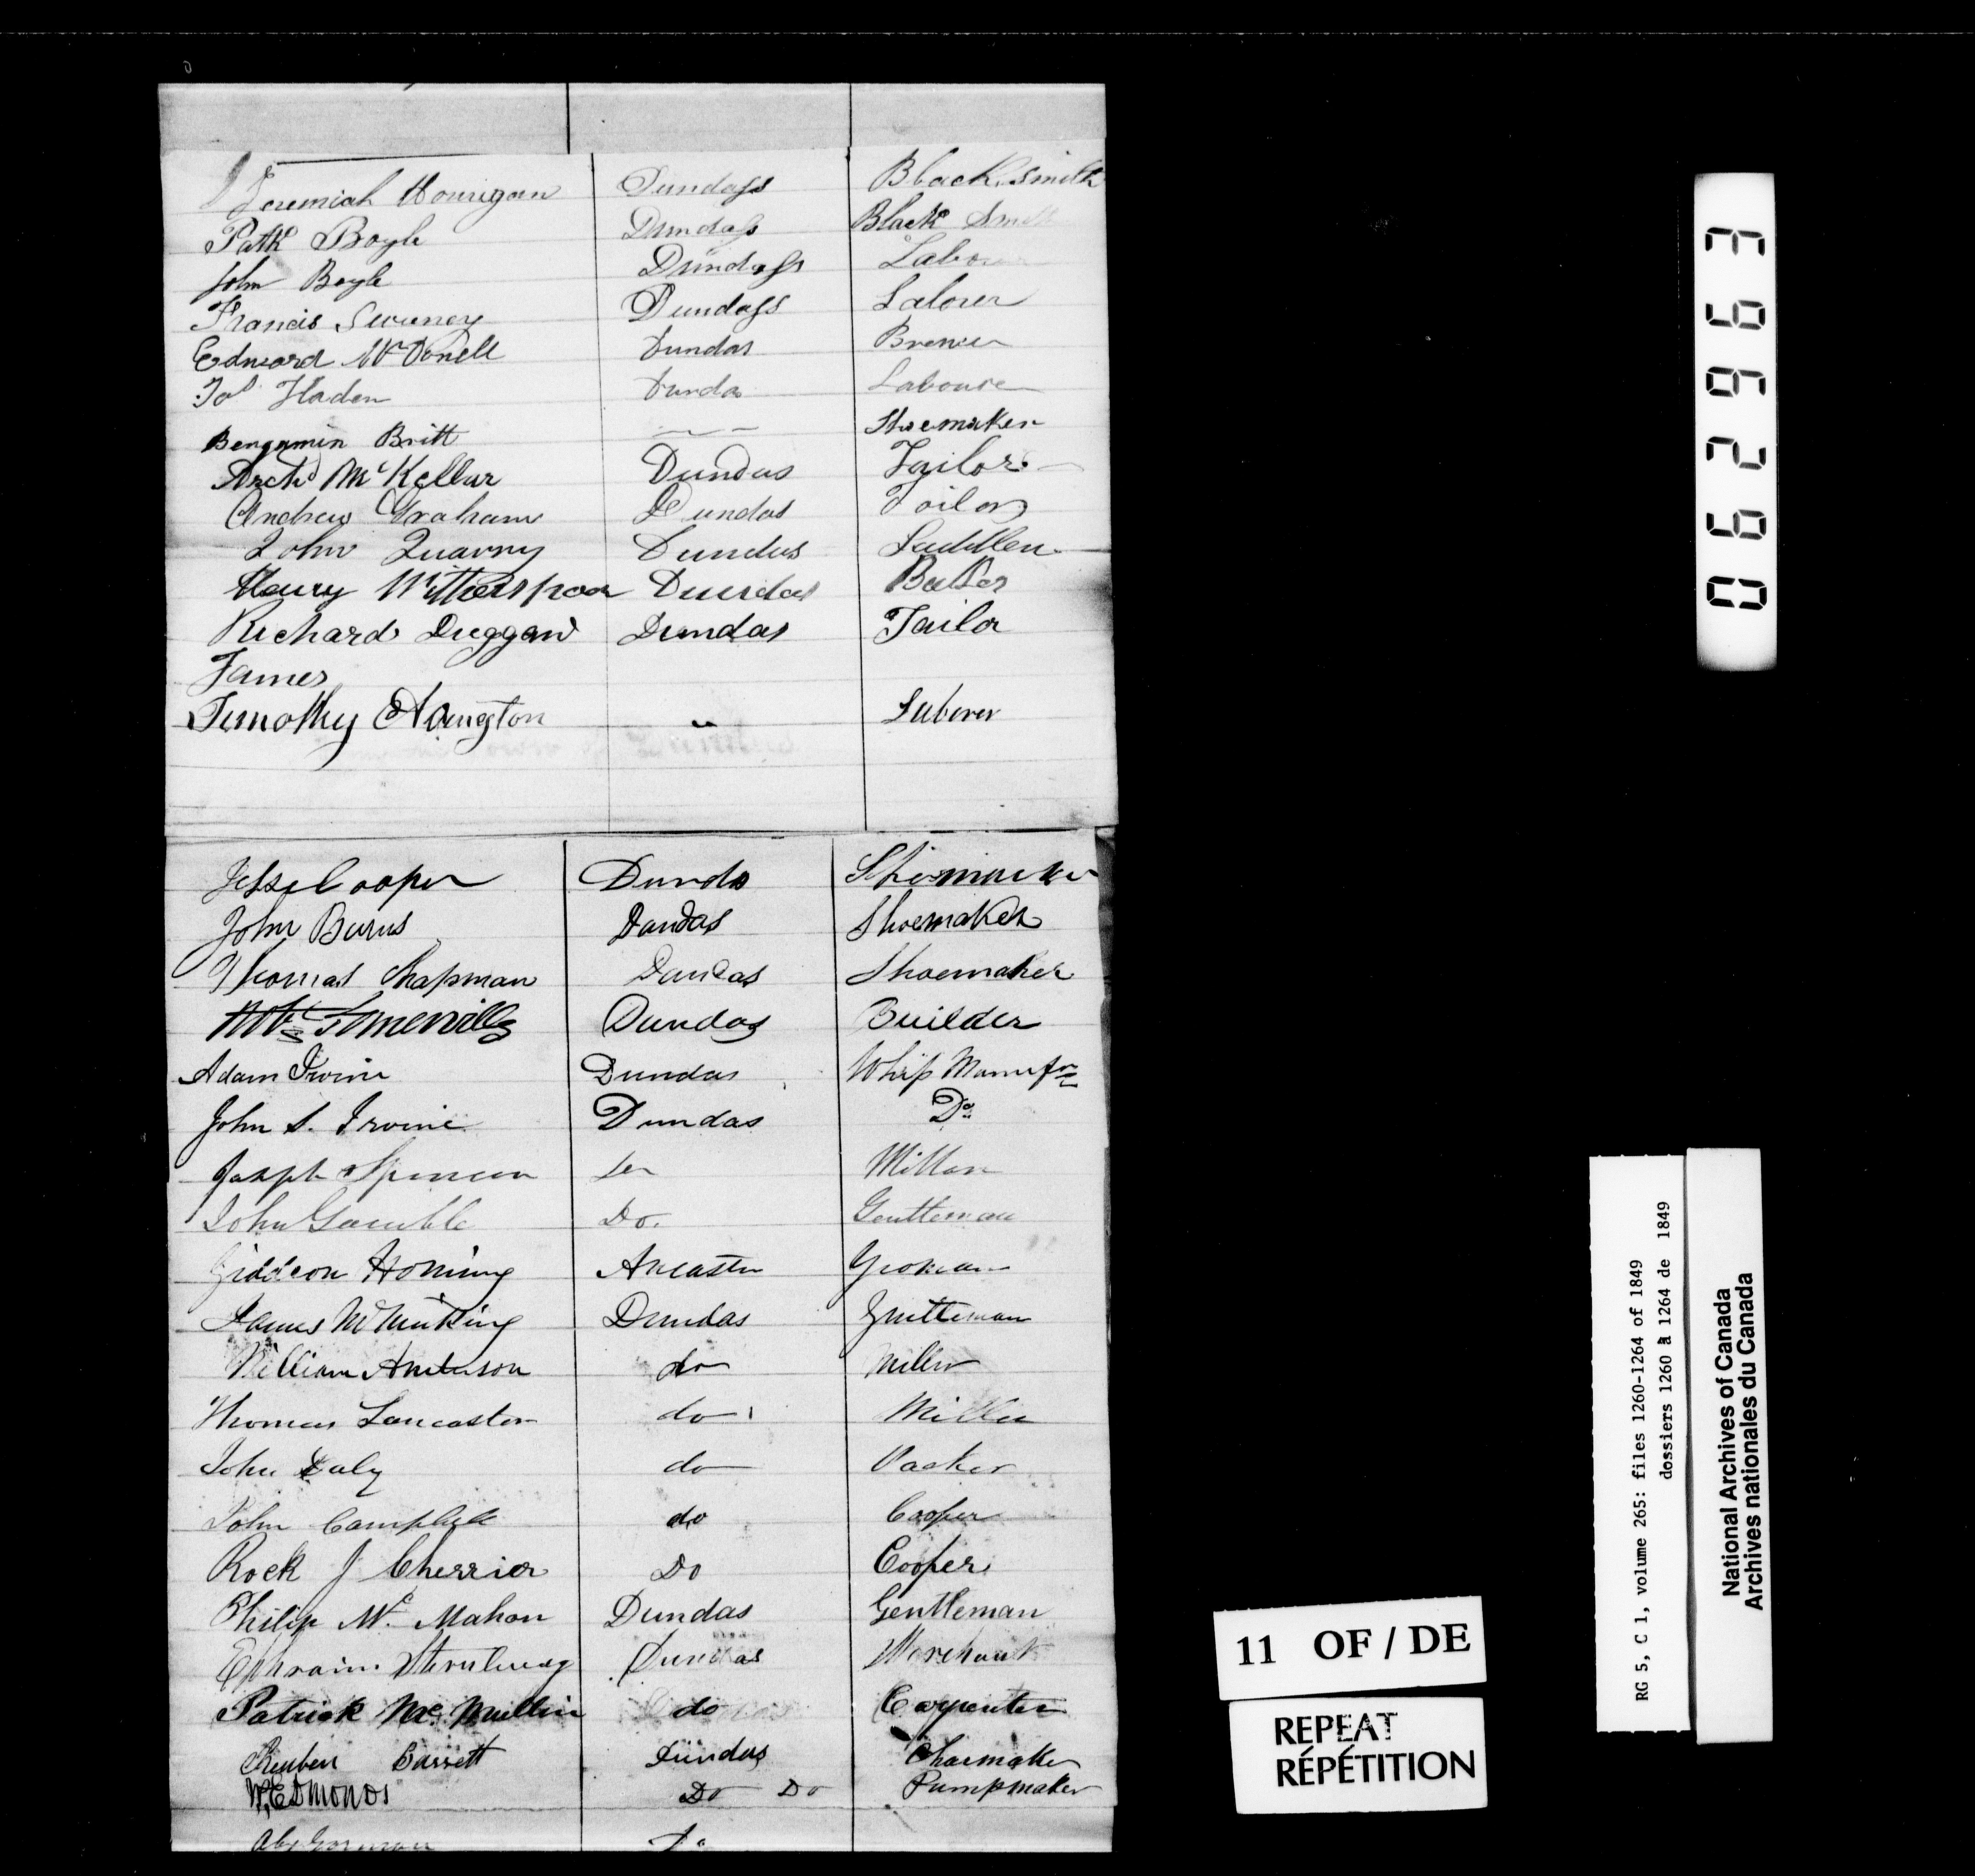 Jeremiah Hourigan Dundass Black Smith
Patk Boyle Dundass Black Smith
John Boyle Dundass Labour
Francis Sweeney Dundass Laborer
Edward McDonell Dundas Brewer
Jos Haden Dunda Labourer
Bengamin Britt Shoemaker
Archd McKellar Dundas Tailor
Andrew Graham Dundas Tailor
John Quarry Dundas Saddler
Henry Witherspoon Dundas Baker
Richard Duggan Dundas Tailor
James
Timothy " Laborer
Jesse Cooper Dunds Shomaker
John Burns Dundas Shoemaker
Thomas Chapman Dundas Shoemaker
Robt Somerville Dundas Builder
Adam Irvine Dundas Whip Manufr
John S. Irvine Dundas Do
Joseph Spencer Do
John Gamble Do. Gentleman
Giddeon Horning Ancaster Yeoman
James Dundas Gentleman
William Anderson do Miller
Thomas Lancaster do Miller
John Daly do Packer
John Campbell do Cooper
Rock J Cherrier Do Cooper
Philip Mc Mahon Dundas Gentleman
Ephraim Dundas Merchant
Patrick Mc Mullin do Carpenter
Reuben Barrett Dundas Chairmaker
W, EDMONDS Do Do Pumpmaker
Alex Gorman Do
062963
RG 5, C 1, volume 265: files 1260-1264 of 1849
dossiers 1260 à 1264 de 1849
National Archives of Canada
Archives nationales du Canada
11 OF / DE
REPEAT
RÉPÉTITION